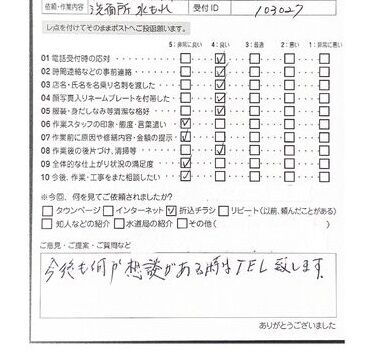 依頼・作業内容 洗面所 水もれ 受付ID 103027
レ点を付けてそのままポストへご投函願います。
5:非常に良い 4:良い 3:普通 2:悪い 1:非常に悪い
01 電話受付時の応対
02 時間連絡などの事前連絡
03 店名・氏名を名乗り名刺を渡した
04 顔写真入りネームプレートを付帯した
05 服装・身だしなみ等清潔な格好
06 作業スタッフの印象・態度・言葉遣い
07 作業前に原因や修繕内容・金額の提示
08 作業後の後片づけ、清掃等
09 全体的な仕上がり状況の満足度
10 今後、作業・工事をまた相談したい
※今回、何を見てご依頼されましたか?
□タウンページ □インターネット ☑折込チラシ □リピート(以前、頼んだことがある)
□知人などの紹介 □水道局の紹介 □その他( )
ご意見・ご提案・ご質問など
今後も何か想談がある時はTEL致します。
ありがとうございました